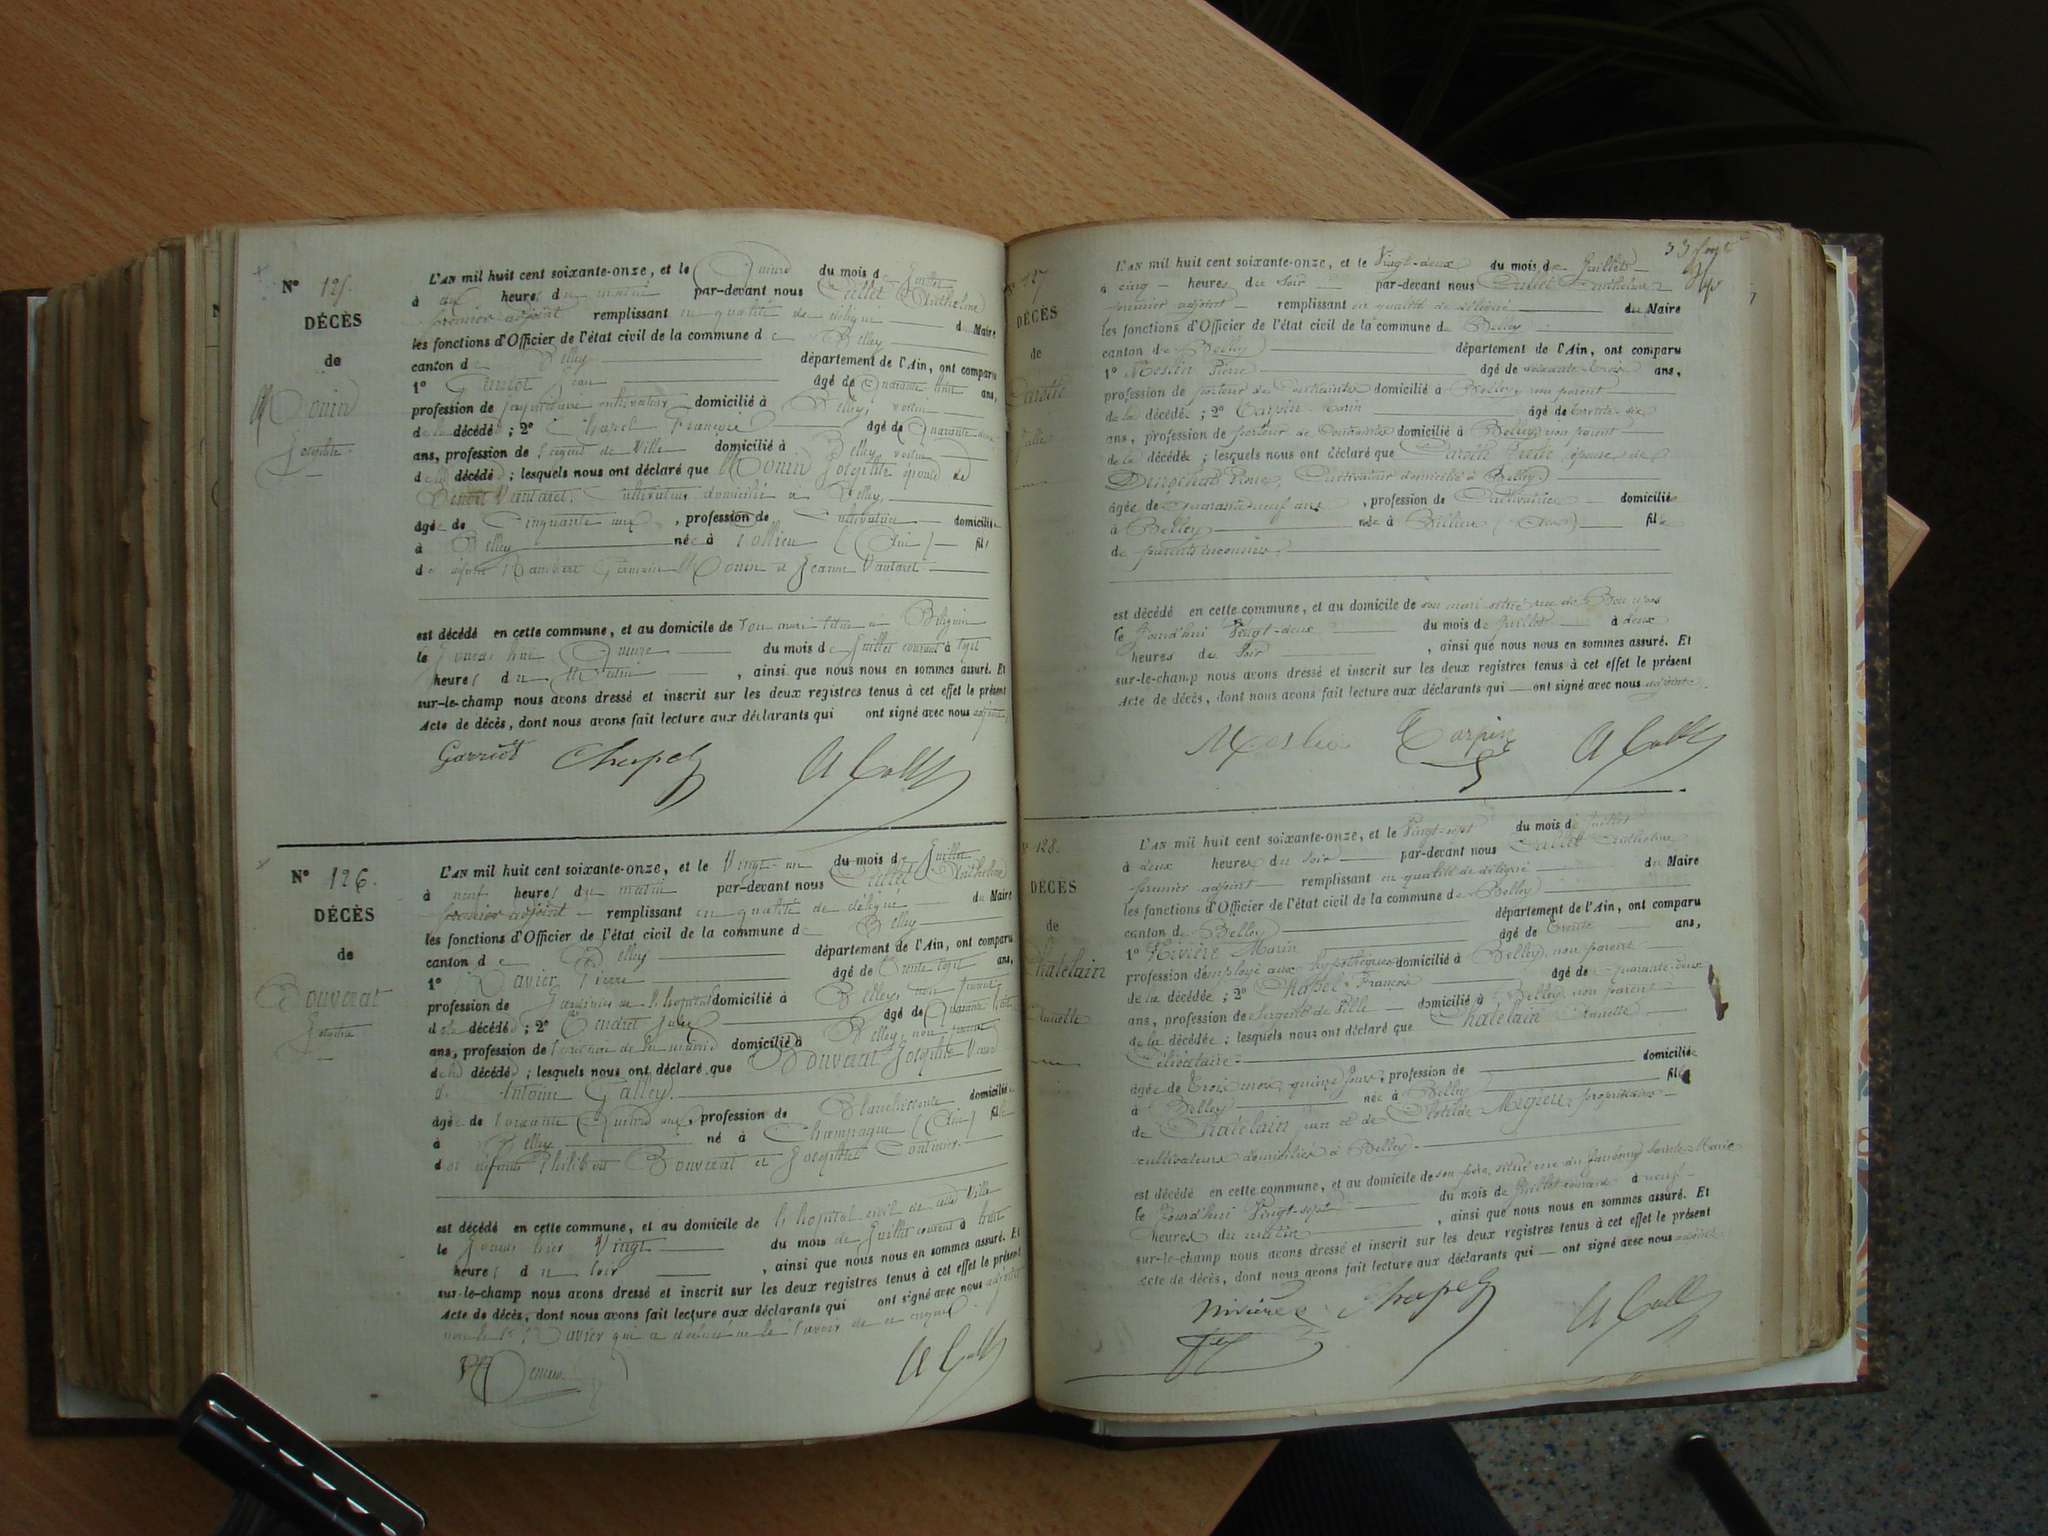 N° 125.
DÉCÈS
de
Monin
Josephte
L'AN mil huit cent soixante-onze, et le Quinze du mois de Juillet
à dix heures du matin par-devant nous Cullet Anthelme
premier adjoint remplissant en qualité de délégué du Maire
les fonctions d'Officier de l'état civil de la commune de Belley
canton de Belley département de l'Ain, ont comparu
1° Jean âgé de Quarante huit ans,
profession de cultivateur domicilié à Belley, voisin
de la décédée ; 2° Chapel François âgé de Quarante deux
ans, profession de Sergent de Ville domicilié à Belley, voisin
de la décédée ; lesquels nous ont déclaré que Monin Josephte épouse de
Benoit Vautaret, Cultivateur domicilié à Belley,
âgée de Cinquante ans, profession de Cultivatrice domiciliée
à Belley née à Pollieu (Ain) fille
de Germain Monin et Jeanne Vautaret
est décédé en cette commune, et au domicile de son mari situé à Billignin
le Jourd'hui Quinze du mois de Juillet courant à sept
heures du Matin, ainsi que nous nous en sommes assuré. Et
sur-le-champ nous avons dressé et inscrit sur les deux registres tenus à cet effet le présent
Acte de décès, dont nous avons fait lecture aux déclarants qui ont signé avec nous adjoint.
Garriot Chapel A Cullet
N° 126.
DÉCÈS
de
Bouverat
Josephte
L'AN mil huit cent soixante-onze, et le Vingt-un du mois de Juillet
à neuf heures du matin par-devant nous Cullet Anthelme
premier adjoint remplissant en qualité de délégué du Maire
les fonctions d'Officier de l'état civil de la commune de Belley
canton de Belley département de l'Ain, ont comparu
1° Ravier Pierre âgé de Trente sept ans,
profession de Jardinier de l'hopital domicilié à Belley, non parent
de la décédée ; 2° Jules âgé de Quarante huit
ans, profession de Secrétaire de la mairie domicilié à Belley, non parent
de la décédée ; lesquels nous ont déclaré que Bouverat Josephte Veuve
d' Antoine Galley.
âgée de soixante Quinze ans, profession de Blanchisseuse domiciliée
à Belley né à Champagne (Ain) fille
des défunts Philibert Bouverat et Josephte
est décédé en cette commune, et au domicile de l'hopital civil de cette Ville
le Jour d'hier Vingt du mois de Juillet courant à huit
heures du soir, ainsi que nous nous en sommes assuré. Et
sur-le-champ nous avons dressé et inscrit sur les deux registres tenus à cet effet le présent
Acte de décès, dont nous avons fait lecture aux déclarants qui ont signé avec nous adjoint
non le Sr Ravier qui a déclaré ne le savoir de ce enquis.
A Cullet
33
N° 127
DÉCÈS
de
L'AN mil huit cent soixante-onze, et le Vingt-deux du mois de Juillet
à cinq heures du soir par-devant nous Cullet Anthelme
premier adjoint remplissant en qualité de délégué du Maire
les fonctions d'Officier de l'état civil de la commune de Belley
canton de Belley département de l'Ain, ont comparu
1° Moslin Pierre âgé de soixante trois ans,
profession de porteur de Contraintes domicilié à Belley, non parent
de la décédée ; 2° Carpin Marin âgé de trente-six
ans, profession de porteur de Contraintes domicilié à Belley, non parent
de la décédée ; lesquels nous ont déclaré que épouse de
Pierre, Cultivateur domicilié à Belley
âgée de quarante neuf ans, profession de Cultivatrice domiciliée
à Belley née à fille
de parents inconnus.
est décédé en cette commune, et au domicile de son mari situé rue de
le Jourd'hui Vingt-deux du mois de Juillet à deux
heures du soir, ainsi que nous nous en sommes assuré. Et
sur-le-champ nous avons dressé et inscrit sur les deux registres tenus à cet effet le présent
Acte de décès, dont nous avons fait lecture aux déclarants qui ont signé avec nous adjoint.
Moslin Carpin A Cullet
N° 128.
DÉCÈS
de
Chatelain
L'AN mil huit cent soixante-onze, et le Vingt-sept du mois de Juillet
à deux heures du soir par-devant nous Cullet Anthelme
premier adjoint remplissant en qualité de délégué du Maire
les fonctions d'Officier de l'état civil de la commune de Belley
canton de Belley département de l'Ain, ont comparu
1° Nivière Marin âgé de trente ans,
profession d'employé aux hypothèques domicilié à Belley, non parent
de la décédée ; 2° Chapel François âgé de quarante-deux
ans, profession de Sergent de Ville domicilié à Belley, non parent
de la décédée ; lesquels nous ont déclaré que Chatelain
Célibataire
âgée de Trois mois, quinze jours, profession de domiciliée
à Belley née à Belley fille
de Chatelain et de Clotilde propriétaires
cultivateurs domiciliés à Belley.
est décédé en cette commune, et au domicile de son père, situé rue du faubourg Sainte Marie
le Jourd'hui Vingt-sept du mois de Juillet courant à neuf
heures du matin, ainsi que nous nous en sommes assuré. Et
sur-le-champ nous avons dressé et inscrit sur les deux registres tenus à cet effet le présent
Acte de décès, dont nous avons fait lecture aux déclarants qui ont signé avec nous adjoint
Nivière Chapel A Cullet